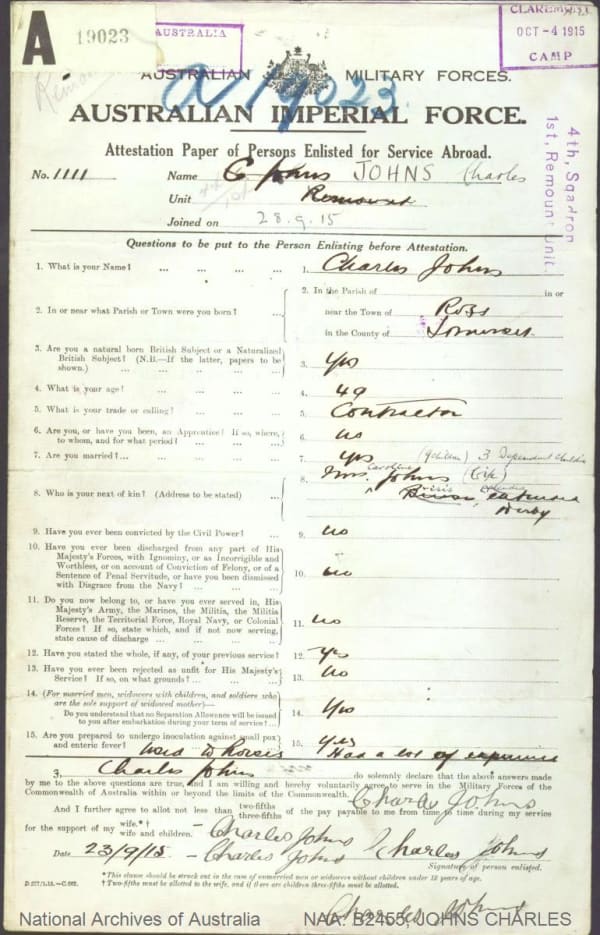 A
19023
AUSTRALIA
CLAREMONT
OCT -4 1915
CAMP
AUSTRALIAN MILITARY FORCES.
a 19023
AUSTRALIAN IMPERIAL FORCE.
Attestation Paper of Persons Enlisted for Service Abroad.
No. 1111 Name C Johns JOHNS Charles
Unit Remount
Joined on 28.9.15
4th, Sqadron
1st, Remount Unit.
Questions to be put to the Person Enlisting before Attestation.
1. What is your Name? ... ... ... ... 1. Charles Johns
2. In or near what Parish or Town were you born? ... 2. In the Parish of in or
near the Town of Ross
in the County of Somerset
3. Are you a natural born British Subject or a Naturalized
British Subject? (N.B.—If the latter, papers to be
shown.) ... ... ... ... 3. Yes
4. What is your age? ... ... ... ... 4. 49
5. What is your trade or calling? ... ... ... 5. Contractor
6. Are you, or have you been, an Apprentice? If so, where,
to whom, and for what period? ... ... ... 6. no
7. Are you married? ... ... ... ... 7. yes (9 children) 3 Dependent children
8. Who is your next of kin? (Address to be stated) ... 8. Mrs. Caroline Johns (Wife)
Derby
9. Have you ever been convicted by the Civil Power? ... 9. no
10. Have you ever been discharged from any part of His
Majesty's Forces, with Ignominy, or as Incorrigible and
Worthless, or on account of Conviction of Felony, or of a
Sentence of Penal Servitude, or have you been dismissed
with Disgrace from the Navy? ... ... ... 10. no
11. Do you now belong to, or have you ever served in, His
Majesty's Army, the Marines, the Militia, the Militia
Reserve, the Territorial Force, Royal Navy, or Colonial
Forces? If so, state which, and if not now serving,
state cause of discharge ... ... ... ... 11. no
12. Have you stated the whole, if any, of your previous service? 12. Yes
13. Have you ever been rejected as unfit for His Majesty's
Service? If so, on what grounds? ... ... 13. no
14. (For married men, widowers with children, and soldiers who
are the sole support of widowed mother)—
Do you understand that no Separation Allowance will be issued
to you after embarkation during your term of service? ... 14. Yes
15. Are you prepared to undergo inoculation against small pox
and enteric fever? 15. Yes
Used to horses Had a lot of experience
I, Charles Johns do solemnly declare that the above answers made
by me to the above questions are true, and I am willing and hereby voluntarily agree to serve in the Military Forces of the
Commonwealth of Australia within or beyond the limits of the Commonwealth.
Charles Johns
And I further agree to allot not less than two-fifths
three-fifths of the pay payable to me from time to time during my service
for the support of my wife.*†
wife and children. - Charles Johns
Date 23/9/15 - Charles Johns Charles Johns
Signature of person enlisted.
*This clause should be struck out in the case of unmarried men or widowers without children under 18 years of age.
†Two-fifths must be allotted to the wife, and if there are children three-fifths must be allotted.
Charles Johns
National Archives of Australia NAA: B2455, JOHNS CHARLES